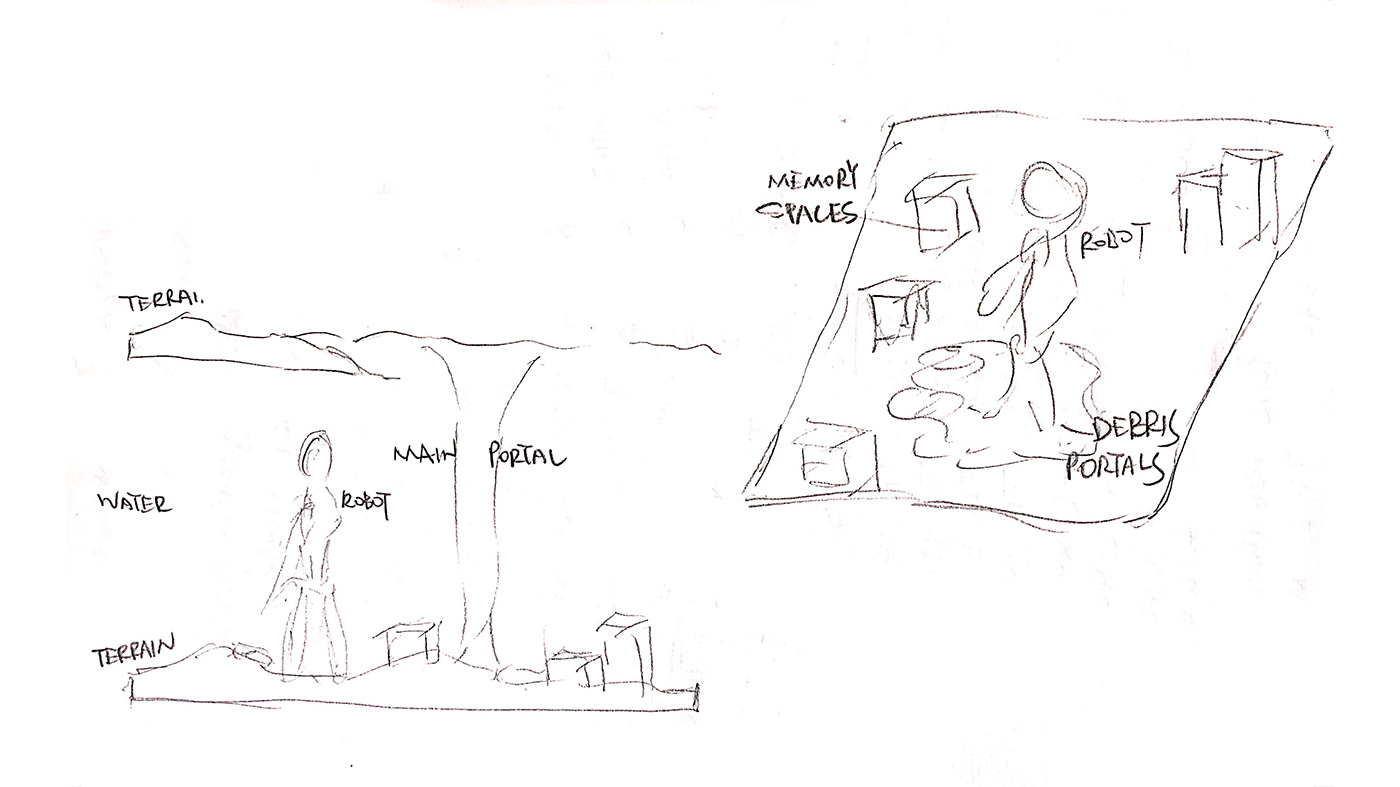 TERRAI.
MAIN PORTAL
WATER
ROBOT
TERRAIN
MEMORY
SPACES
ROBOT
DEBRIS
PORTALS